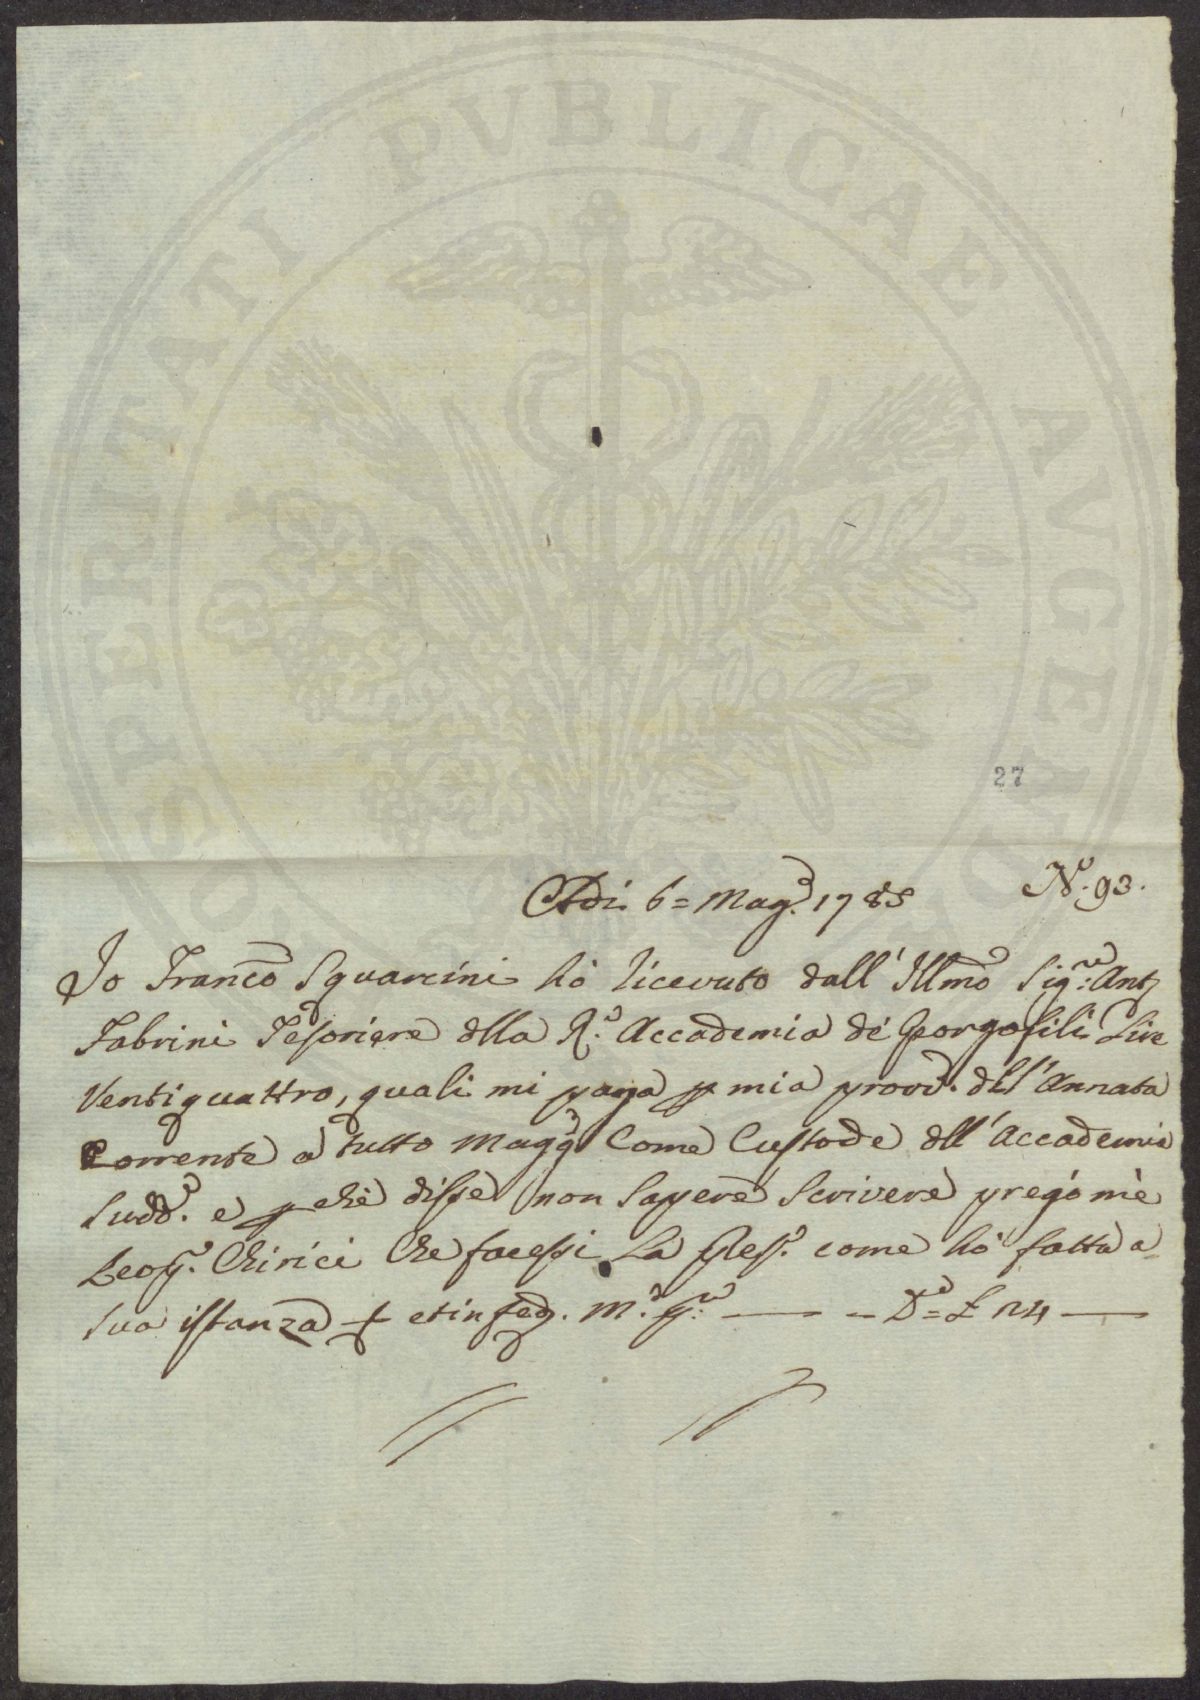 PROSPERITATI PVBLICAE AVGENDAE
27
Adì 6 = Magº. 1785 Nº. 93.
Io Francō Squarcini hò ricevuto dall' Illmō Sigʳᵉ: Antº
Fabrini Tesoriere dlla Rˡᵉ. Accademia de' Georgofili Lire
Ventiquattro, quali mi paga p mia provvⁿᵉ. dll' Annata
Corrente a tutto Maggº Come Custode dll' Accademia
Sudᵈᵃ. e pchè disse non Sapere Scrivere pregò mè
Leopº. Chirici Che facessi La pñteʳ. come hò fatto a
Sua istanza et in fede. Mº. pº: — — Dº = £ 24 —